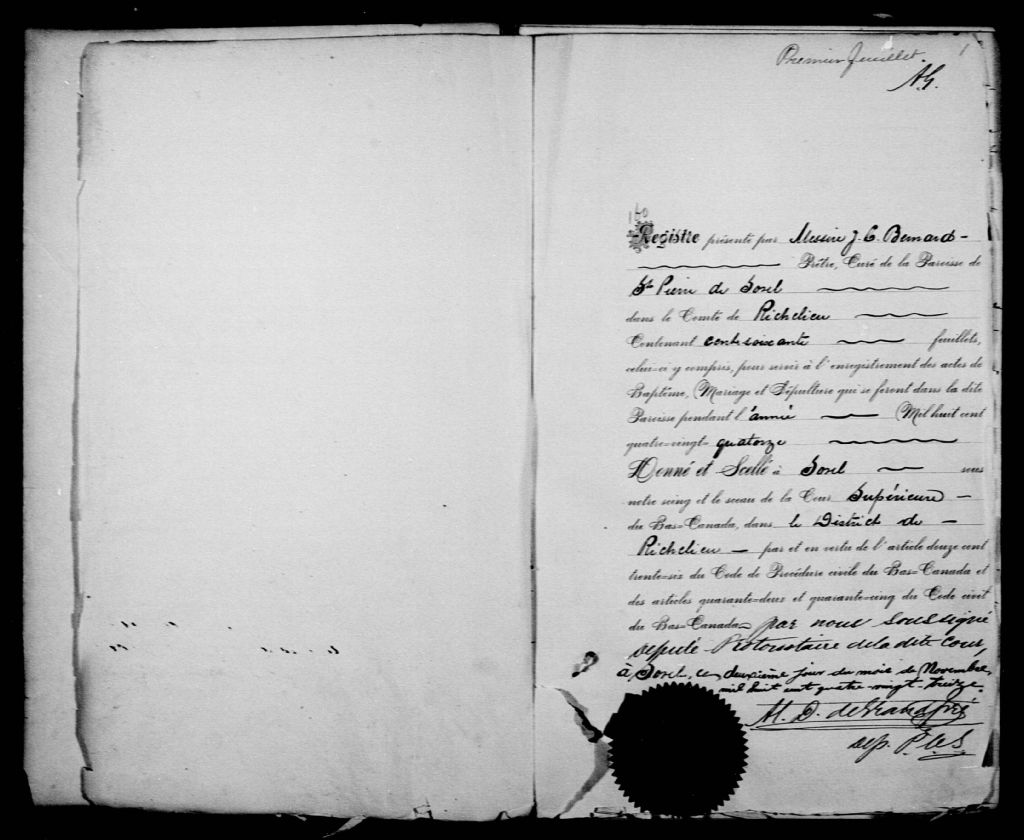 Premier feuillet. 1
A.G.
160
Registre présenté par Messire J. C. Bernard
Prêtre, Curé de la Paroisse de
St Pierre de Sorel
dans le Comté de Richelieu
Contenant cent soixante feuillets,
celui-ci y compris, pour servir à l'enregistrement des actes de
Baptême, Mariage et Sépulture qui se feront dans la dite
Paroisse pendant l'année Mil huit cent
quatre-vingt-quatorze
Donné et Scellé à Sorel sous
notre seing et le sceau de la Cour Supérieure
du Bas-Canada, dans le District de
Richelieu par et en vertu de l'article douze cent
trente-six du Code de Procédure civile du Bas-Canada et
des articles quarante-deux et quarante-cinq du Code civil
du Bas-Canada par nous soussigné
député Protonotaire de la dite Cour,
à Sorel, ce deuxième jour du mois de Novembre
mil huit cent quatre-vingt-treize.
de Grandpré
dep. P.C.S